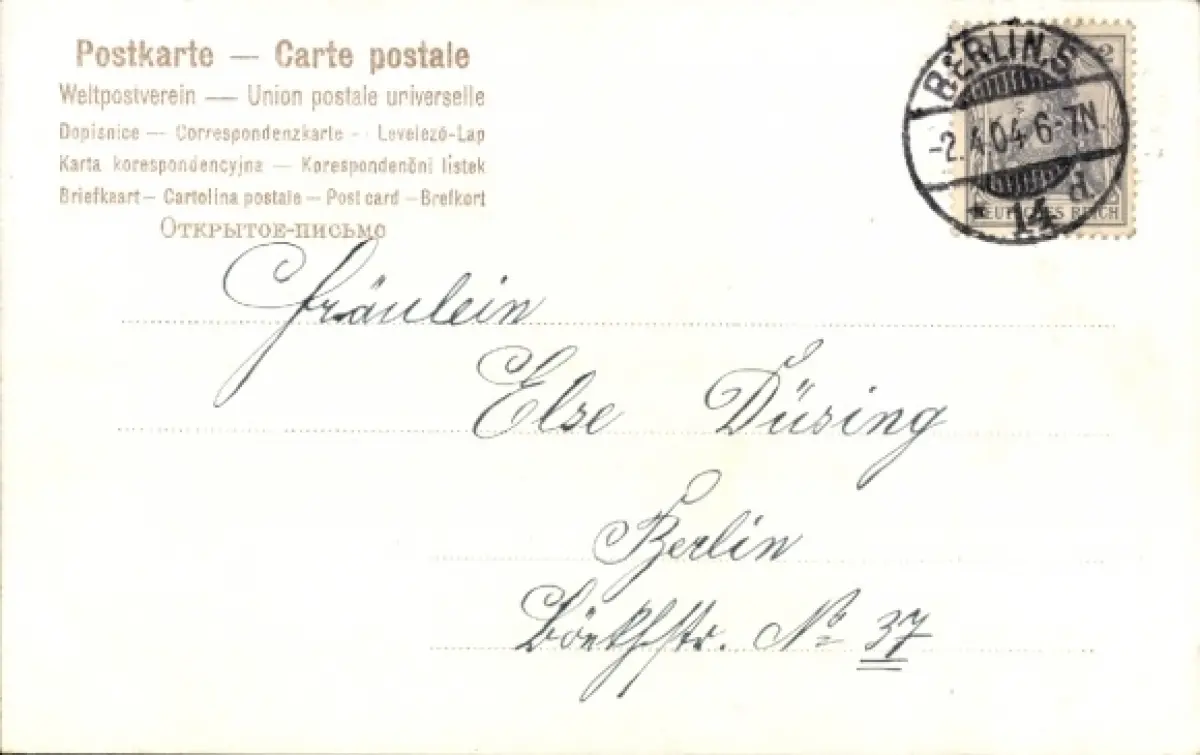 Postkarte — Carte postale
Weltpostverein — Union postale universelle
Dopisnice — Correspondenzkarte - Levelező-Lap
Karta korespondencyjna — Korespondenční lístek
Briefkaart — Cartolina postale — Post card — Brefkort
Открытое-письмо
BERLIN.S
-2.4.04 6-7N.
* 14 d.
2
DEUTSCHES REICH
Fräulein
Else Düsing
Berlin
Böckhstr. No 37